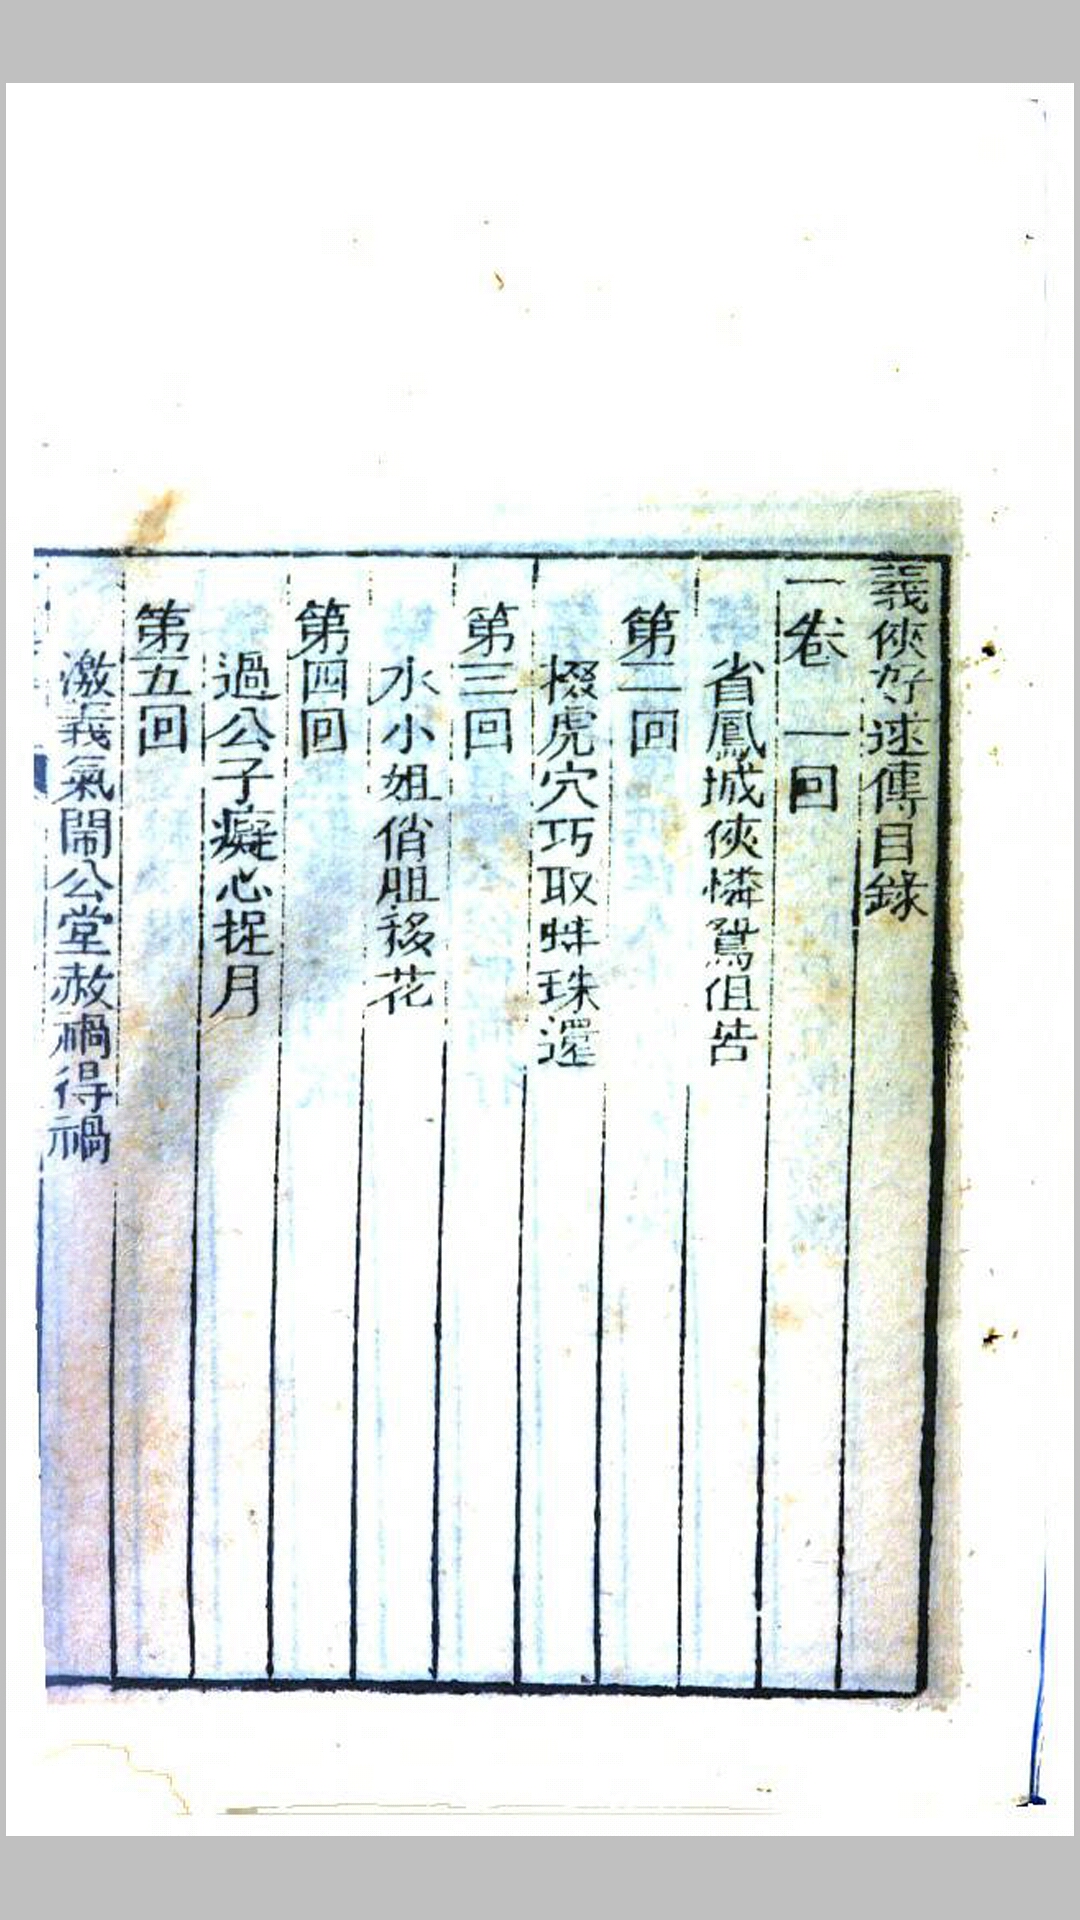 義俠好逑傳目錄
一卷 一回
省鳳城俠憐鴛侶苦
第二回
掇虎穴巧取蚌珠還
第三回
水小姐俏胆移花
第四回
過公子癡心捉月
第五回
激義氣鬧公堂赦禍得禍